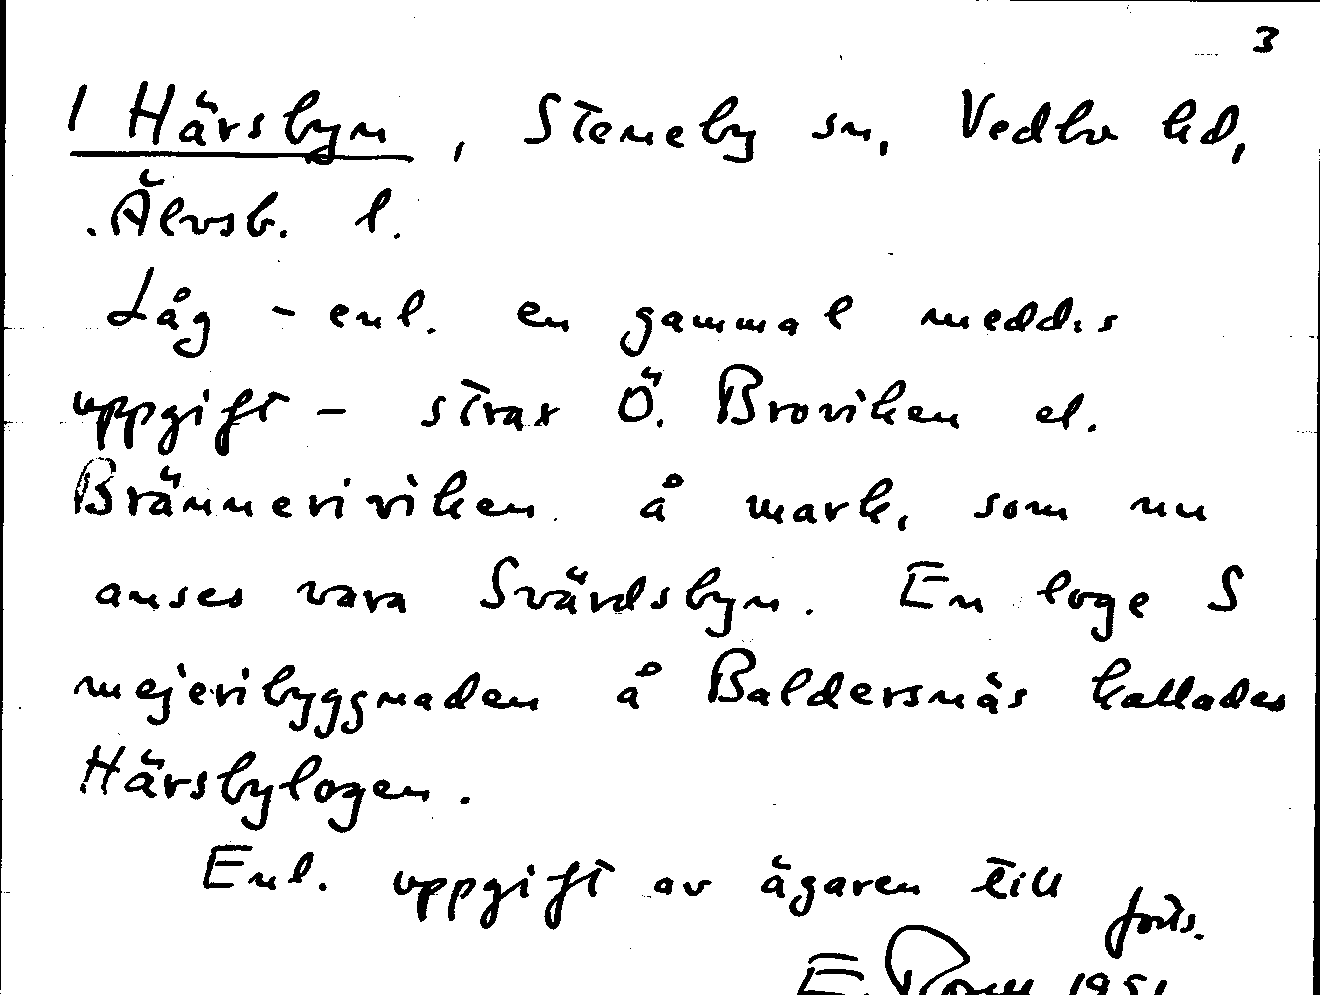 3
1 Härsbyn, Steneby sn, Vedbo hd,
Älvsb. l.
Låg - enl. en gammal medd:s
uppgift - strax Ö. Broviken el.
Bränneriviken å mark, som nu
anses vara Svärdsbyn. En loge S
mejeribyggnaden å Baldersnäs kallades
Härsbylogen.
Enl. uppgift av ägaren till
forts.
E. 1951